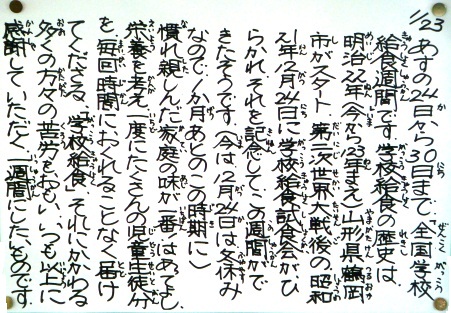 1/23
あすの24日から30日まで、全国学校
給食週間です。学校給食の歴史は
明治22年(今から123年まえ)山形県鶴岡
市がスタート。第二次世界大戦後の昭和
21年12月24日に学校給食試食会がひ
らかれそれを記念して、この週間がで
きたそうです。(今は12月24日は冬休み
なので1か月あとのこの時期に)
慣れ親しんだ家庭の味が一番ではあってよし、
栄養を考え一度にたくさんの児童生徒分
を、毎回時間におくれることなく届け
てくださる「学校給食」それにかかわる
多くの方々の苦労をおもい、いつも以上に
感謝していただく一週間にしたいものです